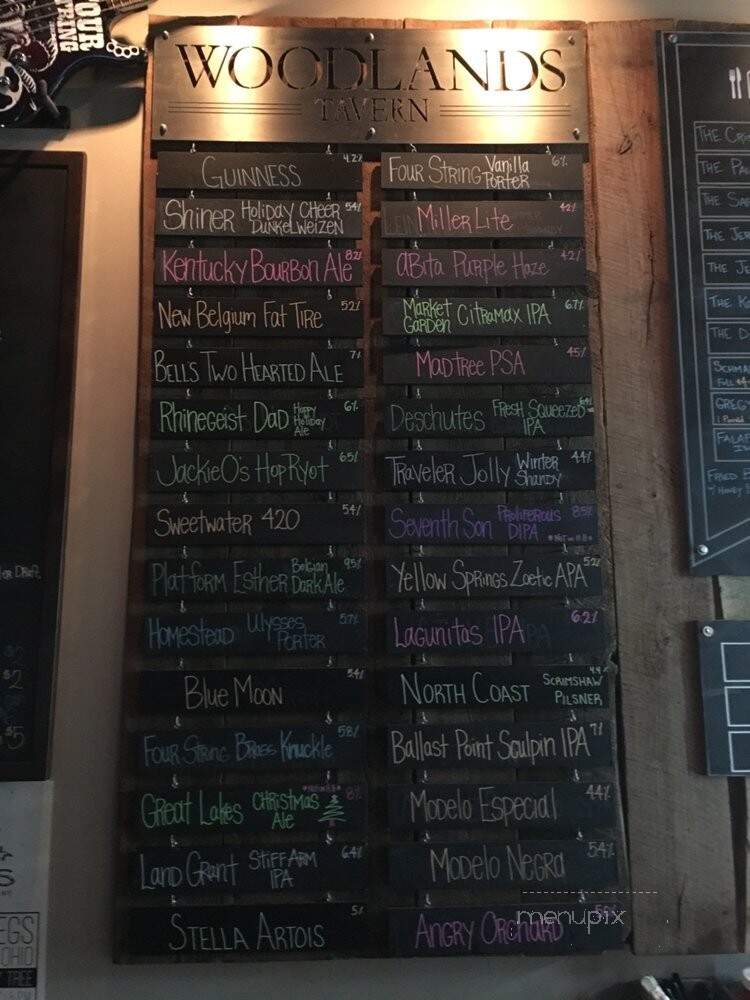 YOUR
STRING
WOODLANDS
TAVERN
GUINNESS 4.2%
Shiner Holiday Cheer Dunkelweizen 5.4%
Kentucky Bourbon Ale 8.2%
New Belgium Fat Tire 5.2%
Bell's Two Hearted Ale 7%
Rhinegeist Dad Happy Holiday Ale 6%
Jackie O's Hop Ryot 6.5%
Sweetwater 420 5.4%
Platform Esther Belgian Dark Ale 9.5%
Homestead Ulysses Porter 5.7%
Blue Moon 5.4%
Four String Brass Knuckle 5.8%
Great Lakes Christmas Ale 8%
Land Grant Stiff Arm IPA 6.4%
Stella Artois 5%
Four String Vanilla Porter 6%
Miller Lite 4.2%
Abita Purple Haze 4.2%
Market Garden Citramax IPA 6.7%
Madtree PSA 4.5%
Deschutes Fresh Squeezed IPA
Traveler Jolly Winter Shandy 4.4%
Seventh Son Proliferous DIPA 8.5%
Yellow Springs Zoetic APA 5.2%
Lagunitas IPA 6.2%
North Coast Scrimshaw Pilsner 4.4%
Ballast Point Sculpin IPA 7%
Modelo Especial 4.4%
Modelo Negra 5.4%
Angry Orchard
menupix
THE
THE
THE
THE JE
THE JE
THE
THE D
FRIED
Draft
$2
$5
EGS
OHIO